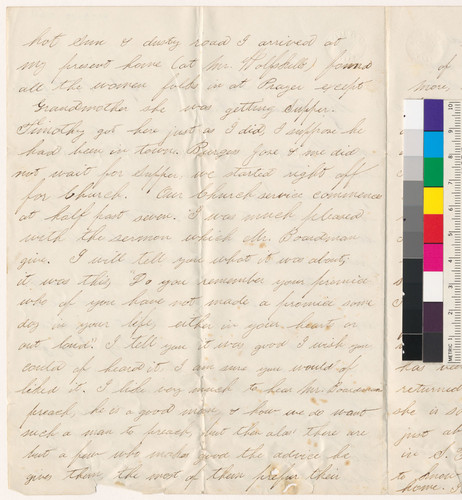 hot sun & dusty road I arrived at
my present home (at Mr. Wolfskill's) found
all the women folks in at Prayer except
Grandmother she was getting Supper.
Timothy got here just as I did, I suppose he
had been in town. Burgess Jose & me did
not wait for Supper, we started right off
for Church. Our Church service commences
at half past seven. I was much pleased
with the sermon which Mr. Boardman
give. I will tell you what it was about,
it was this, "Do you remember your promise
who of you have not made a promise some
day in your life, either in your heart or
out loud". I tell you it was good I wish you
could of heard it. I am sure you would of
liked it. I like very much to hear Mr. Boardman
preach, he is a good man, & how we do want
such a man to preach, but then alas there are
but a few who makes good the advice he
gives them, the most of them prefer their
of
more.
has
returned
she is
just ab
in S.
to know
home. I